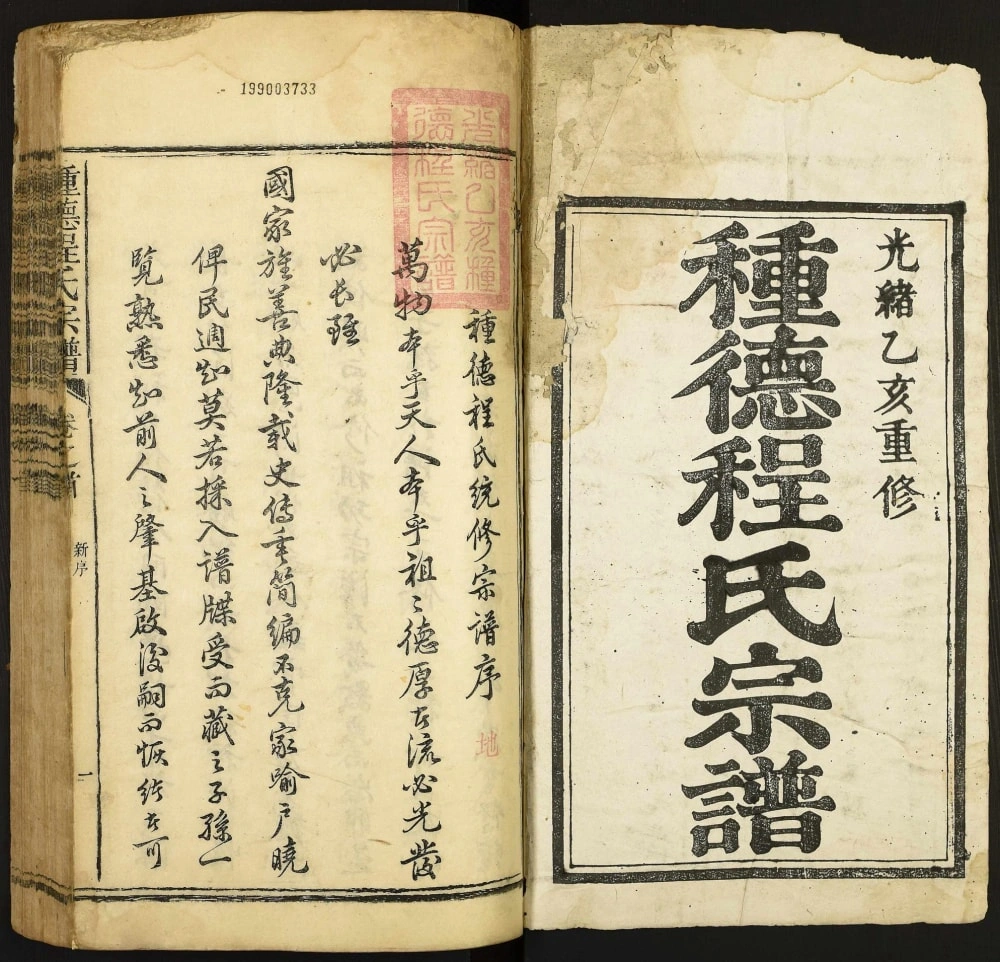 光緒乙亥重修
種德程氏宗譜
199003733
光緒乙亥種
德程氏宗譜
種德程氏統修宗譜序
地
萬物本乎天人本乎祖々德厚者流必光發
必長雖
國家旌善典隆載史傳垂簡編不克家喻戶曉
俾民週知莫若採入譜牒受而藏之子孫一
覽熟悉知前人之肇基啟後嗣而恢結者可
種德程氏宗譜
卷之首
新序
一